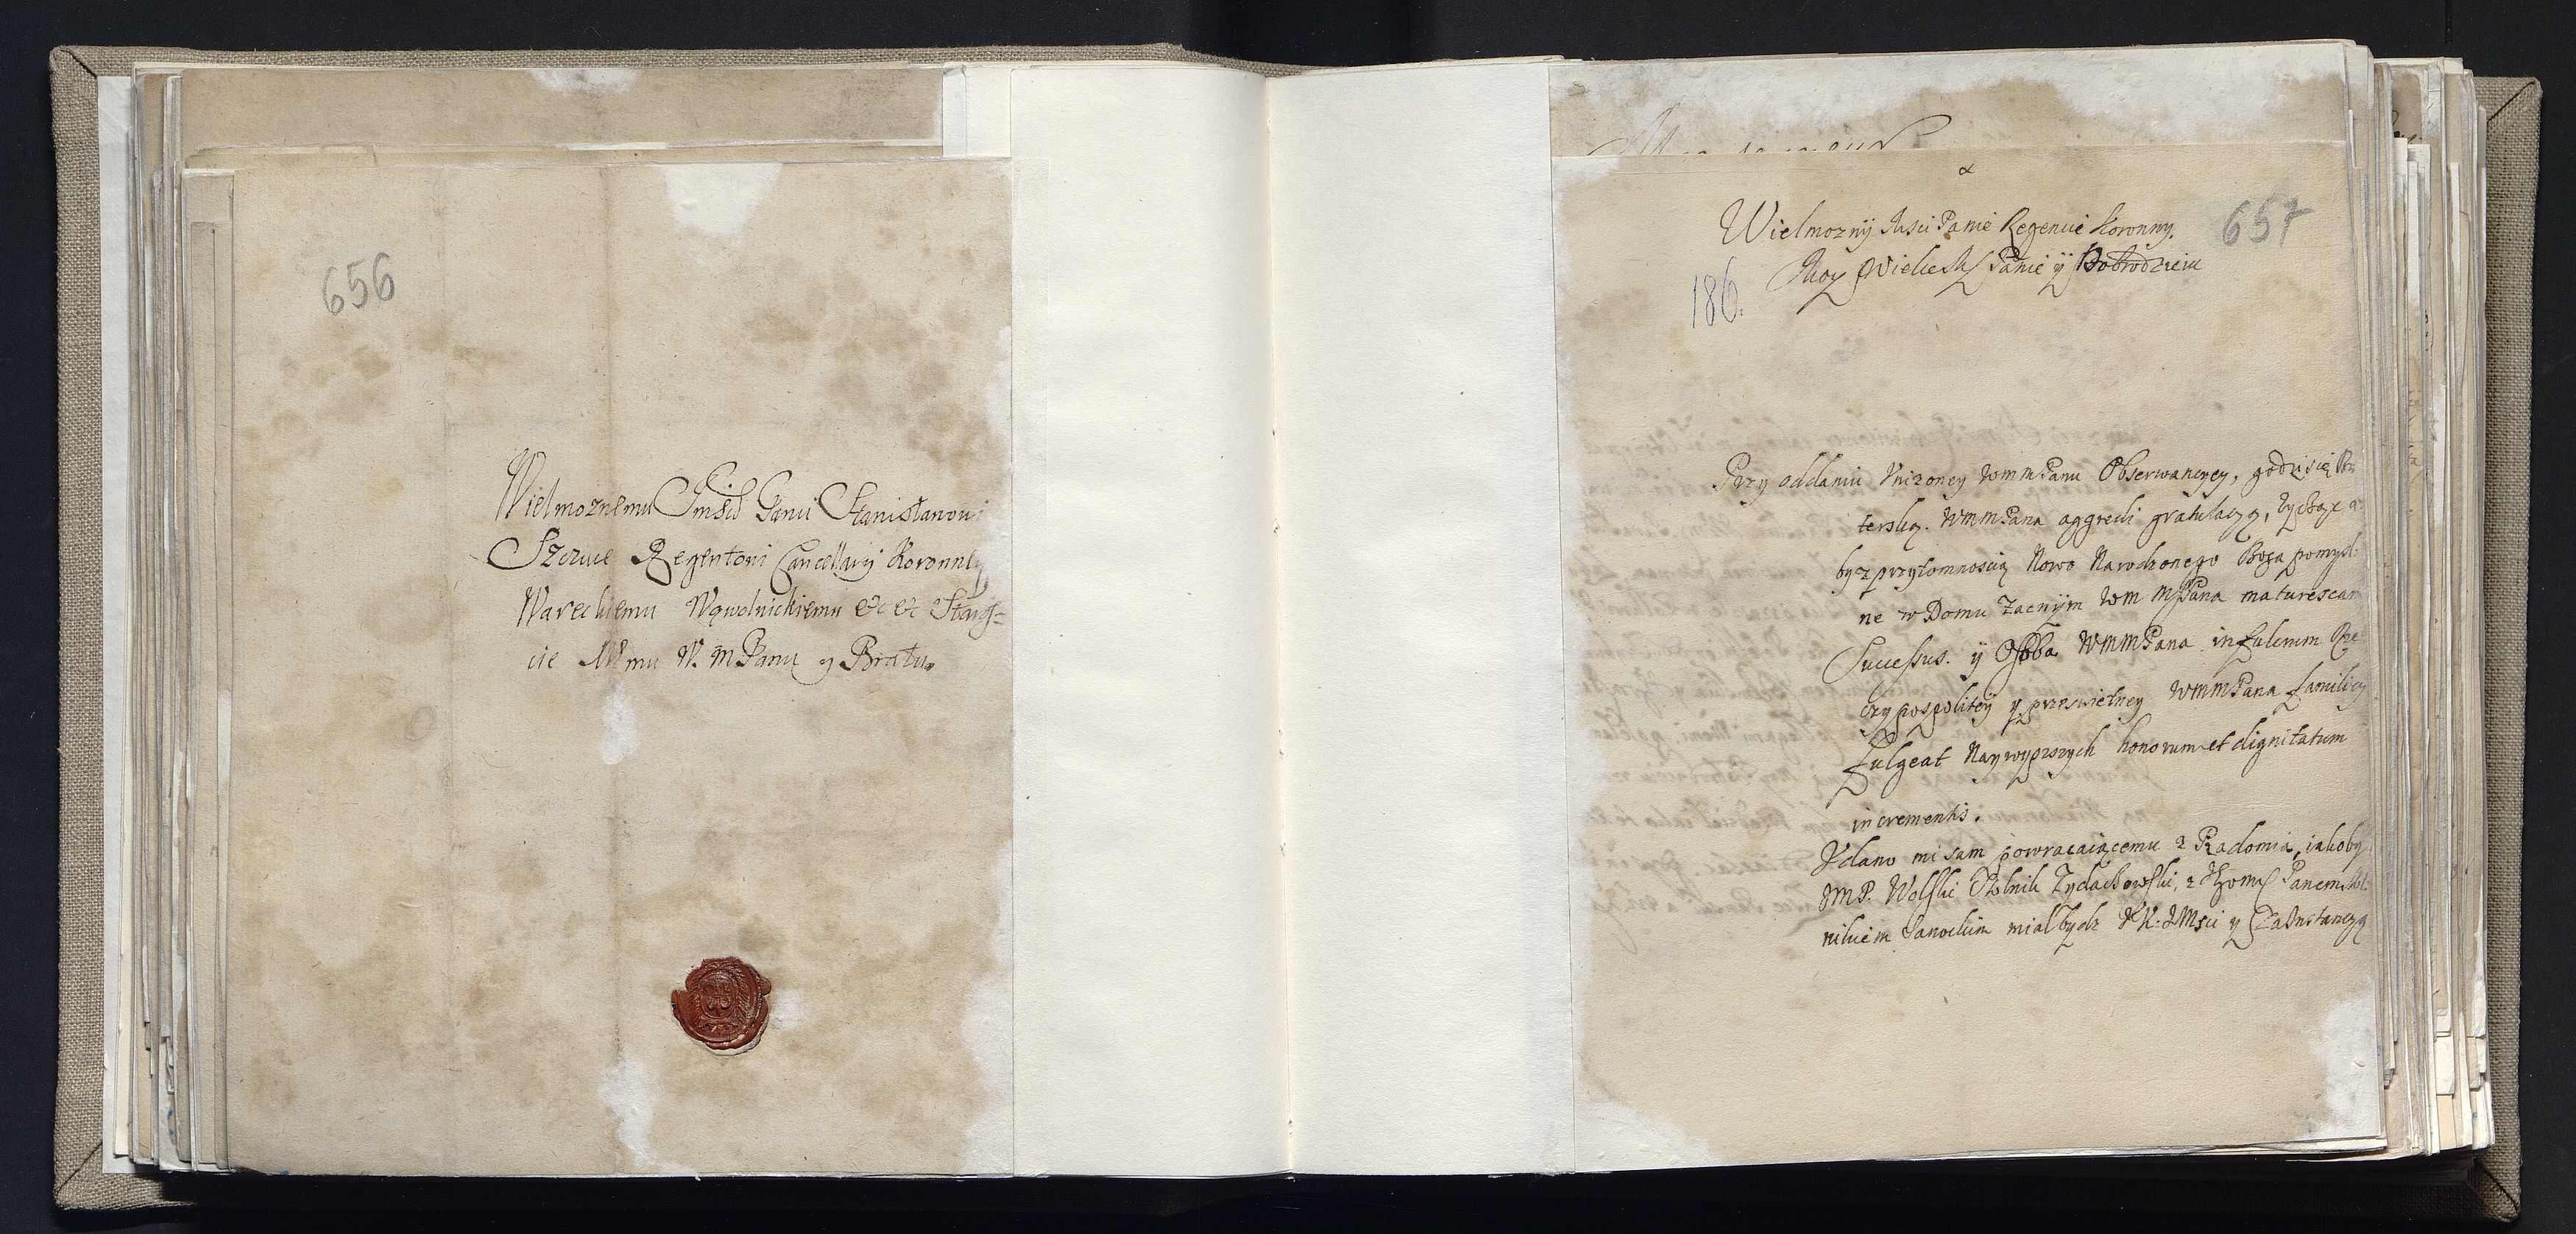 656
Wielmoznemu Jmsci Panu Stanisławowi
Szczuce Regentowi Cancellaryi Koronney
Wareckiemu Wąwolnickiemu &c &c Staroś=
cie Memu W. M Panu y Bratu.
657
Wielmozny Msci Panie Regencie Koronny.
Moy Wielce Panie ÿ Dobrodzieiu
186.
Przy oddaniu Vnizoney WMMPanu Obserwancyey, godzi się
terską. WMMPana aggredi gratulacyą, zycząc a
by z przytomnoscią Nowo Narodzonego Boga pomysl:
ne w Domu Zacnÿm WM MPana maturescant
Successus. ÿ Osoba WMMPana in fulcrum Rze
czypospolitey y przeswietney WMMPana familiey
fulgeat Naywyzszych honorum et dignitatum
incrementis.
Vdano mi sam powracaiącemu z Radomia, iakoby
JMP. Wolski Stolnik Zydaczowski, z Panem
nikiem Sanockim miał bydz JK: JMsci y Za Instancyą